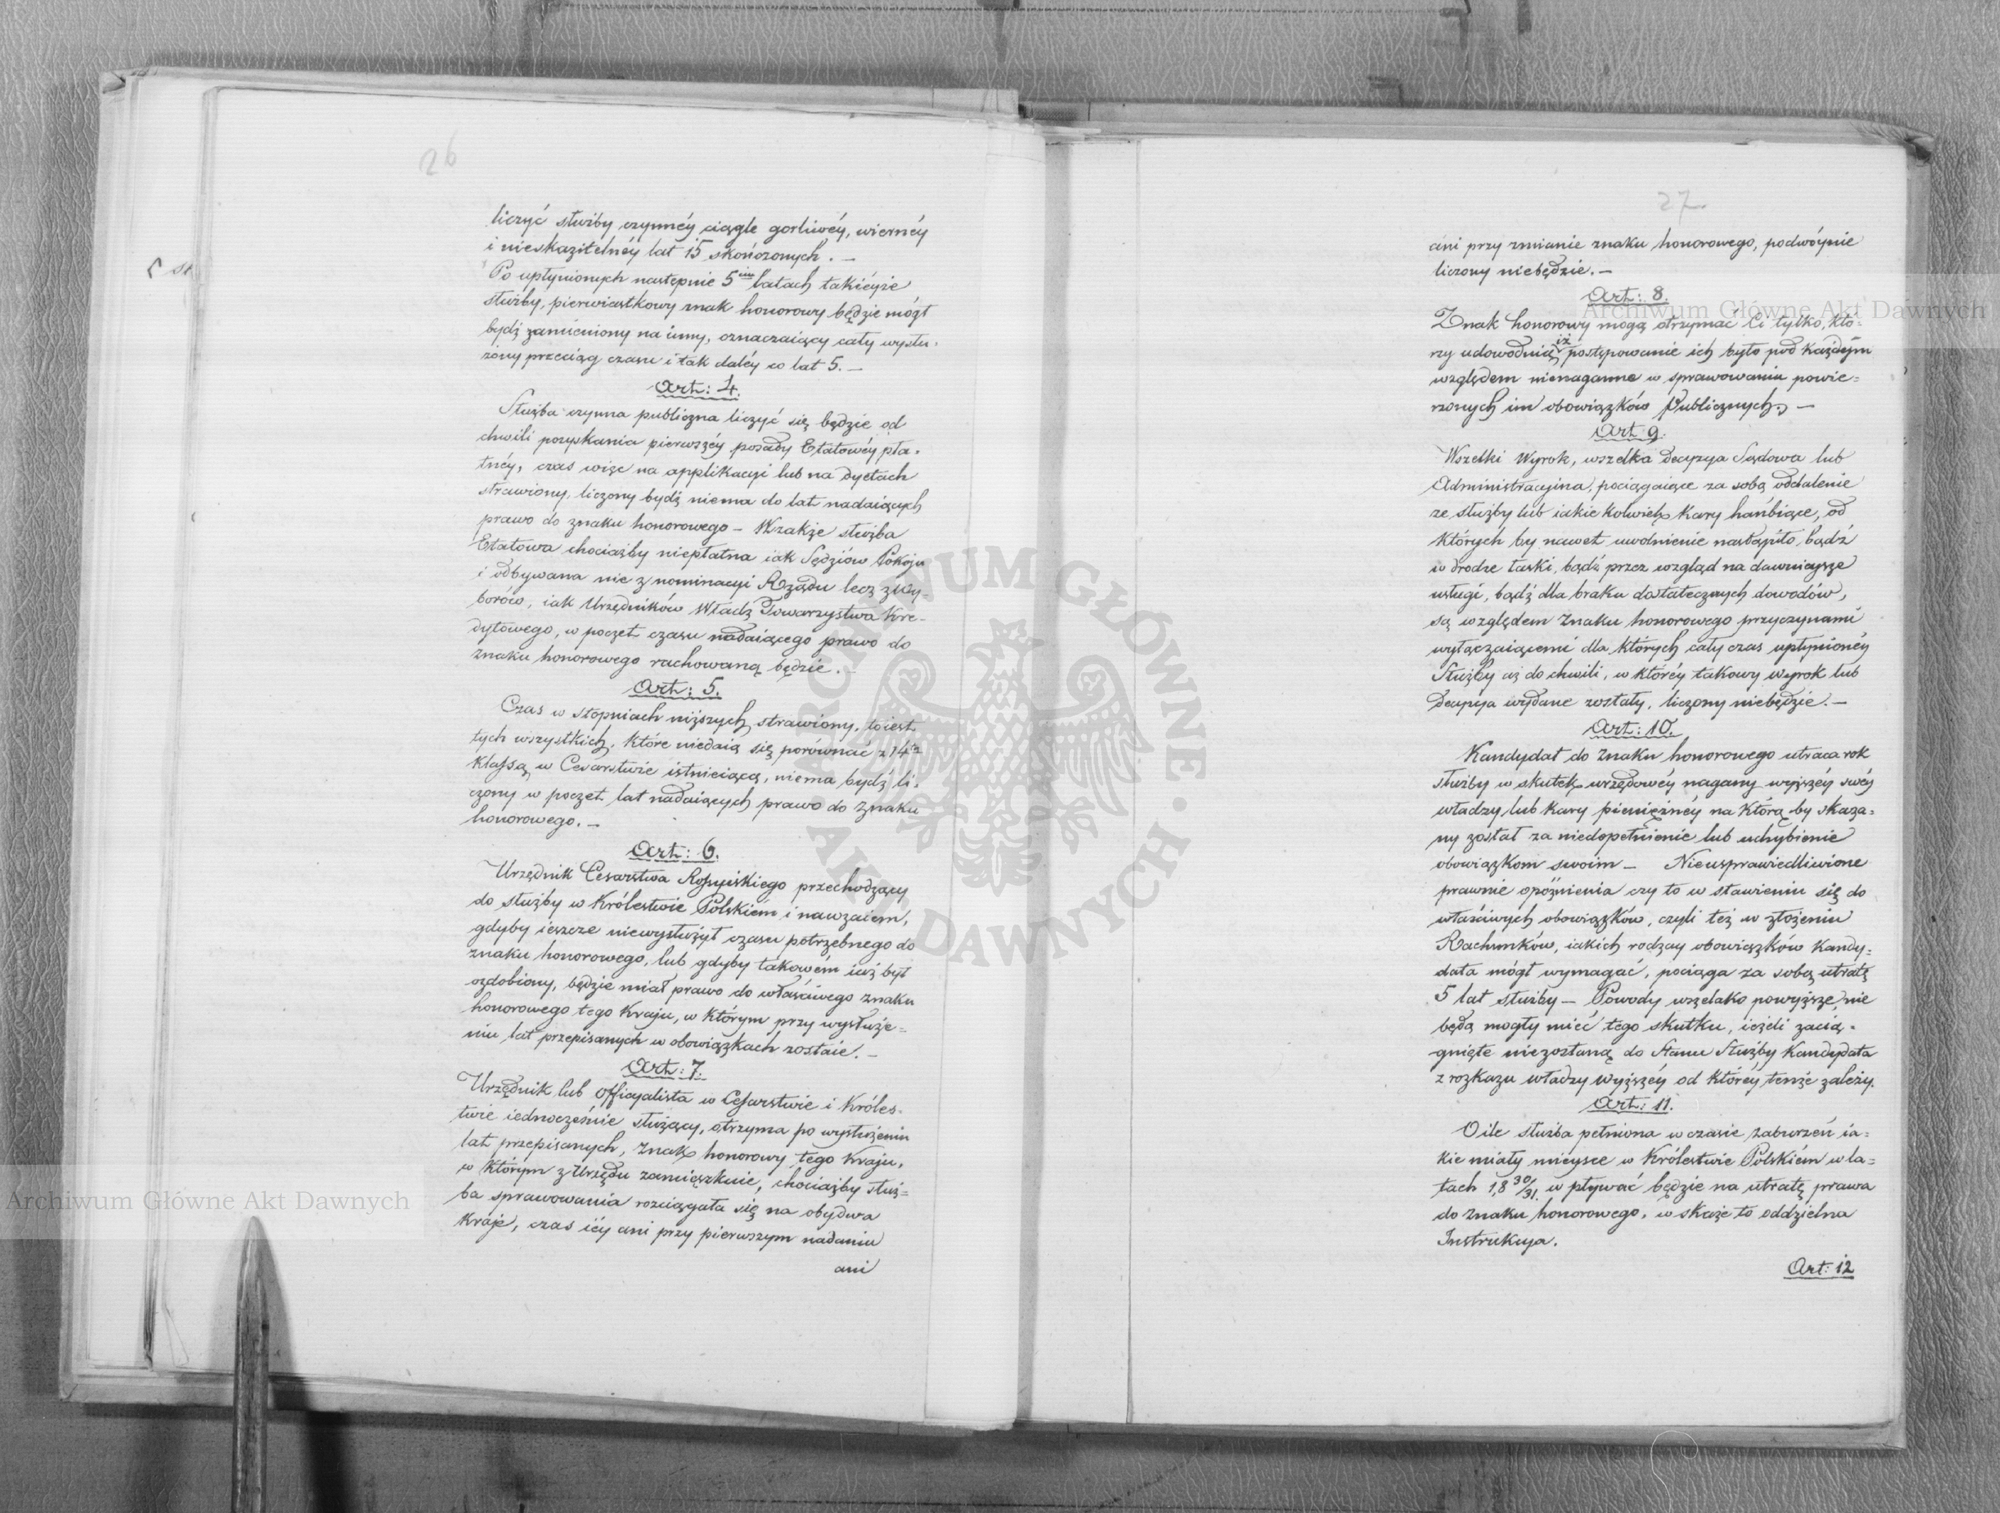 26
liczyć służby czynnéy ciągle gorliwéy, wiernéy
i nieskazitelnéy lat 15 skończonych. —
Po upłynionych następnie 5ciu latach takiéyże
służby, pierwiastkowy znak honorowy będzie mógł
bydź zamieniony na inny, oznaczaiący cały wysłu-
żony przeciąg czasu i tak daléy co lat 5. —
Art: 4.
Służba czynna publiczna liczyć się będzie od
chwili pozyskania pierwszéy posady Etatowéy pła-
tnéy, czas więc na applikacyi lub na dyetach
strawiony, liczony bydź niema do lat nadaiących
prawo do znaku honorowego — Wszakże służba
Etatowa chociażby niepłatna iak Sędziów Pokoju
i odbywana nie z nominacyi Rządu lecz z wy-
borów, iak Urzędników Władz Towarzystwa Kre-
dytowego, w poczet czasu nadaiącego prawo do
znaku honorowego rachowaną będzie. —
Art: 5.
Czas w stopniach niższych strawiony, to iest
tych wszystkich, które niedaią się porównać z 14tą
klassą w Cesarstwie istnieiącą, niema bydź li-
czony w poczet lat nadaiących prawo do znaku
honorowego. —
Art: 6.
Urzędnik Cesarstwa Rossyiskiego przechodzący
do służby w Królestwie Polskiém i nawzaiem,
gdyby ieszcze niewysłużył czasu potrzebnego do
znaku honorowego, lub gdyby takowém iuż był
ozdobiony, będzie miał prawo do właściwego znaku
honorowego tego Kraju, w którym przy wysłuże-
niu lat przepisanych w obowiązkach zostaie. —
Art: 7.
Urzędnik lub Officyalista w Cesarstwie i Króles-
twie iednocześnie służący, otrzyma po wysłużeniu
lat przepisanych, znak honorowy tego Kraju,
w którym z Urzędu zamięszkuie, chociażby służ-
ba sprawowania rozciągała się na obydwa
Kraje, czas iéy ani przy pierwszym nadaniu
ani
27.
ani przy zmianie znaku honorowego, podwóynie
liczony niebędzie. —
Art: 8.
Znak honorowy mogą otrzymać Ci tylko, któ-
rzy udowodnią iż postępowanie ich było pod każdym
względem nienaganne w sprawowaniu powie-
rzonych im obowiązków Publicznych. —
Art 9.
Wszelki Wyrok, wszelka Decyzya Sądowa lub
Administracyina, pociągaiące za sobą oddalenie
ze służby lub iakie kolwiek kary hańbiące, od
których by nawet uwolnienie nastąpiło, bądź
w drodze łaski, bądź przez wzgląd na dawnieysze
usługi, bądź dla braku dostatecznych dowodów,
są względem znaku honorowego przyczynami
wyłączaiącemi dla których cały czas upłynionéy
Służby aż do chwili, w któréy takowy Wyrok lub
Decyzya wydane zostały, liczony niebędzie. —
Art: 10.
Kandydat do znaku honorowego utraca rok
służby w skutek urzędowéy nagany wyższéy swéy
władzy, lub kary pieniężnéy na którą by skaza-
ny został za niedopełnienie lub uchybienie
obowiązkom swoim — Nieusprawiedliwione
prawnie opóźnienia czy to w stawieniu się do
właściwych obowiązków, czyli też w złożeniu
Rachunków, iakich rodzay obowiązków Kandy-
data mógł wymagać, pociąga za sobą utratę
5 lat służby — Powody wszelako powyższe nie
będą mogły mieć tego skutku, ieżeli zacią-
gnięte niezostaną do Stanu Służby Kandydata
z rozkazu władzy wyższéy od któréy tenże zależy.
Art: 11.
O ile służba pełniona w czasie zaburzeń ia-
kie miały mieysce w Królestwie Polskiem w la-
tach 18 30/31. wpływać będzie na utratę prawa
do znaku honorowego, wskaże to oddzielna
Instrukcya.
Art: 12
Archiwum Główne Akt Dawnych
Archiwum Główne Akt Dawnych
ARCHIWUM GŁÓWNE AKT DAWNYCH